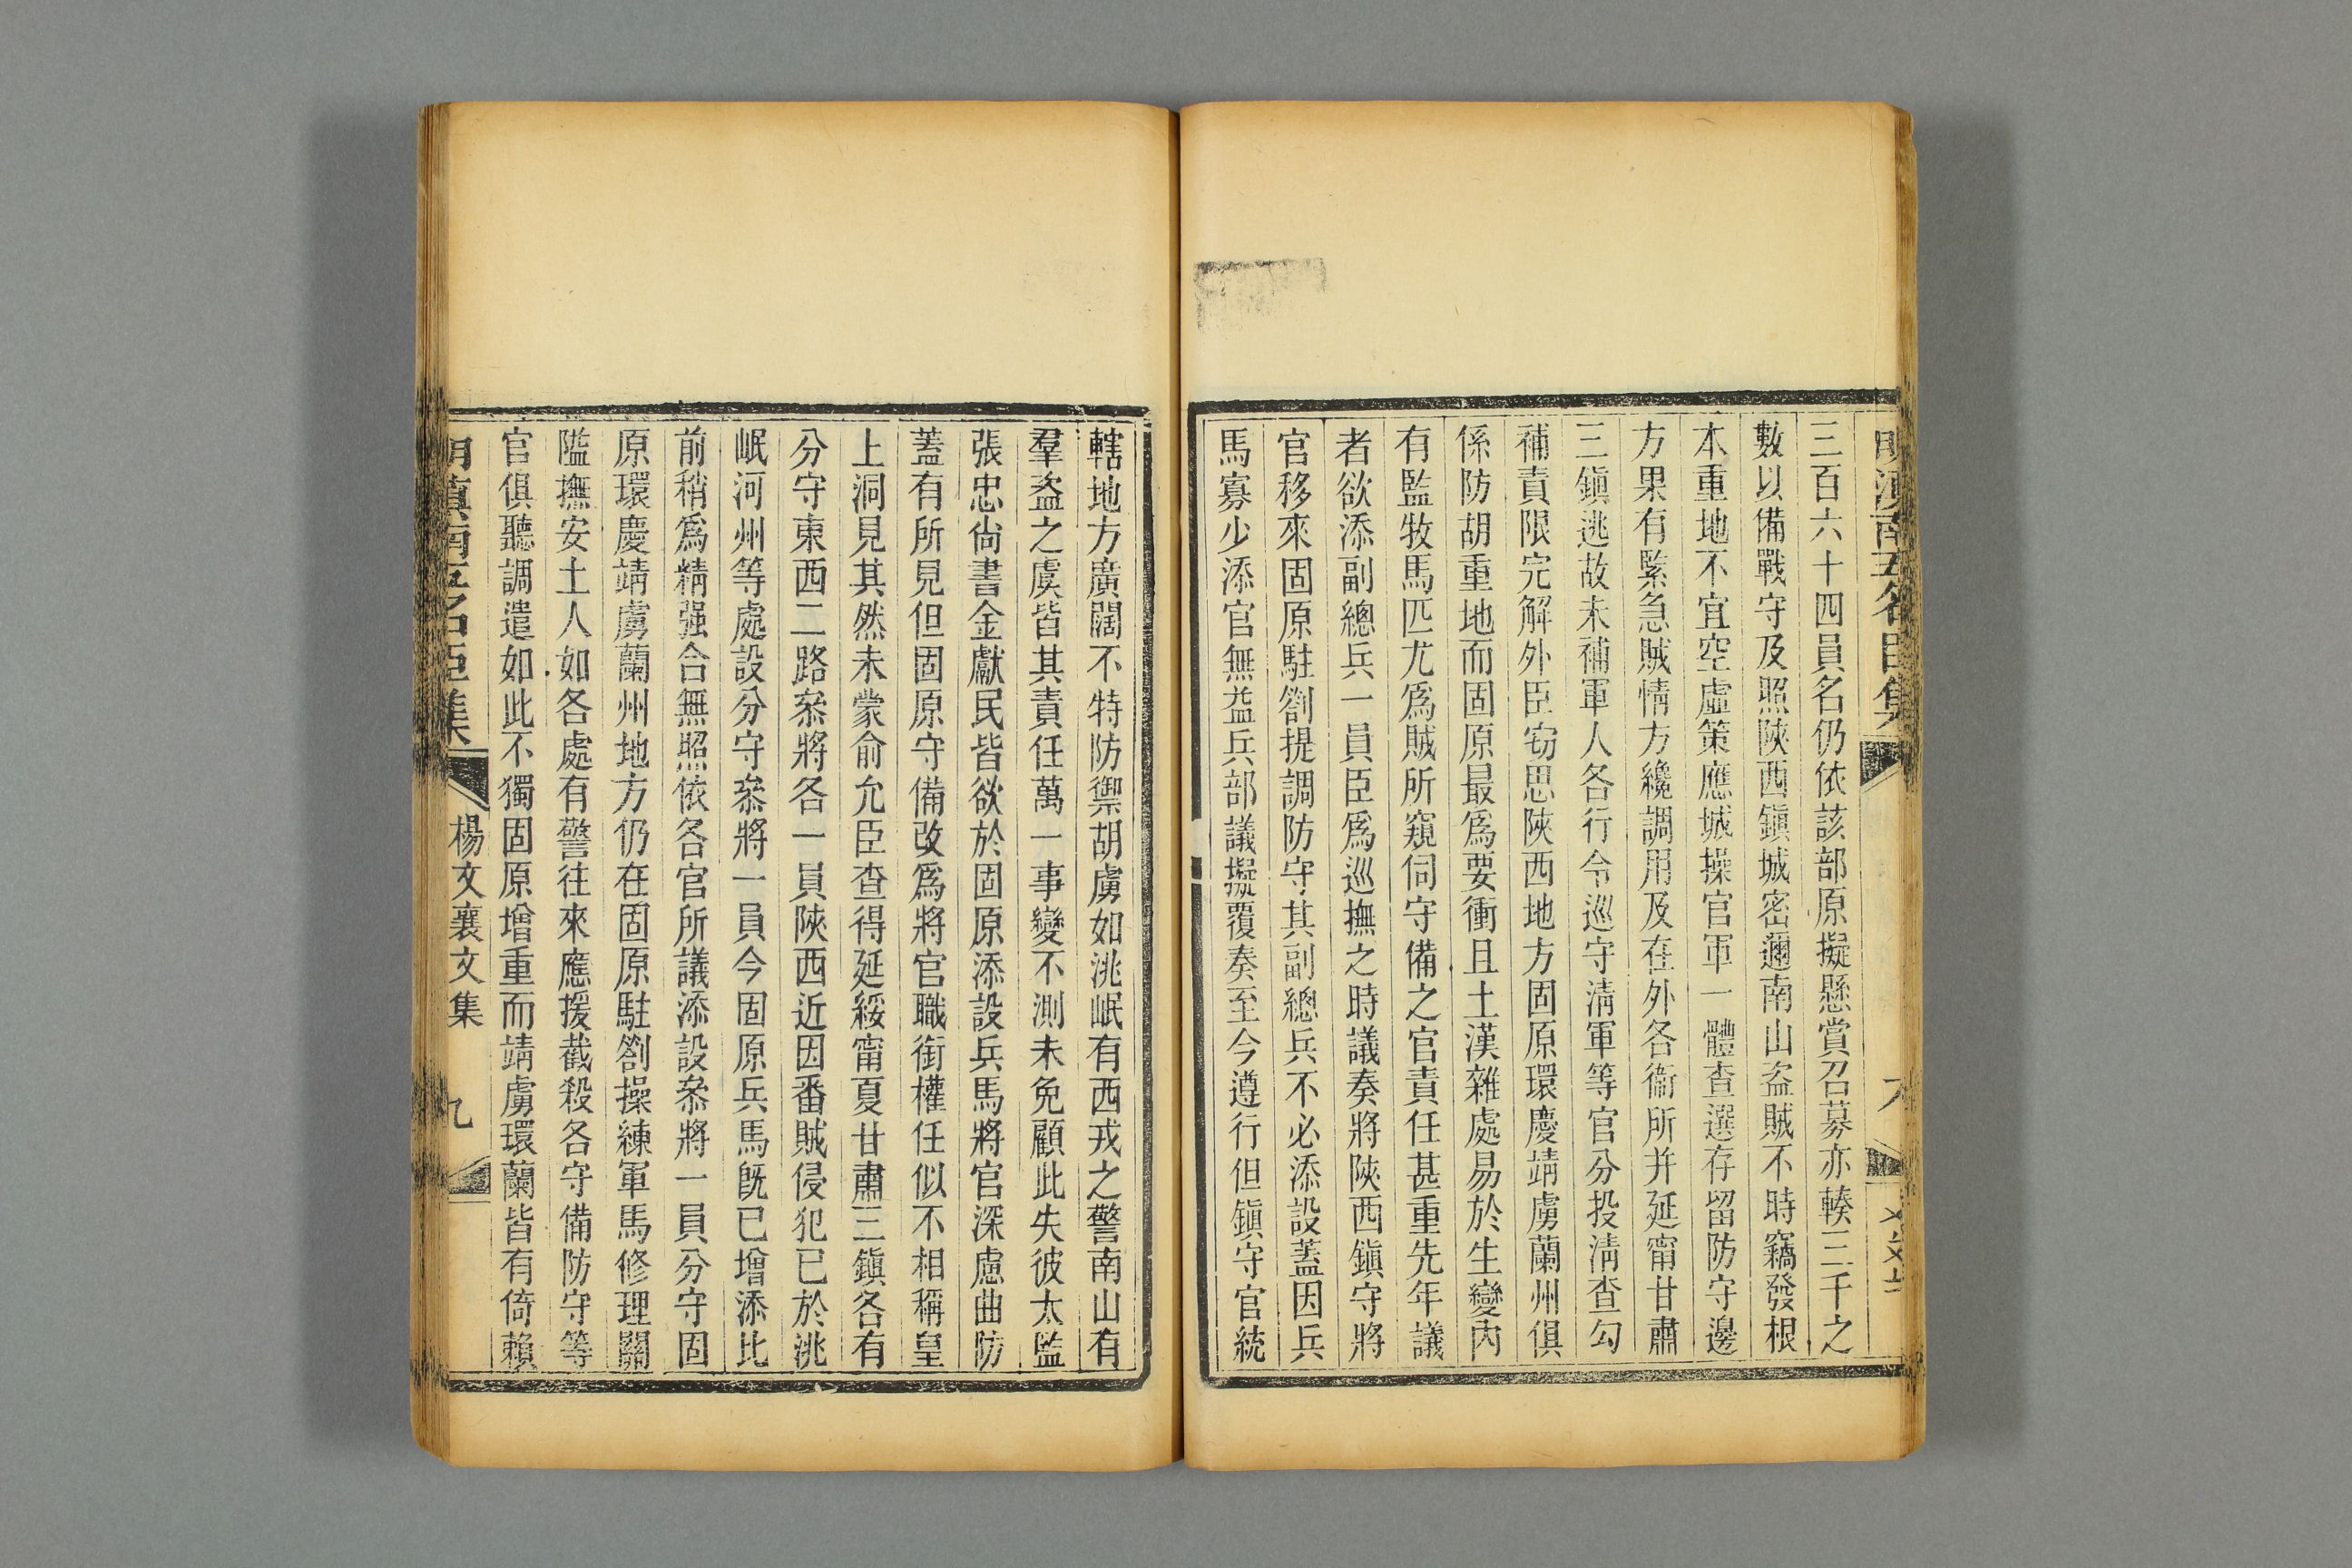 三百六十四員名仍依該部原擬懸賞召募亦輳三千之
數以備戰守及照陝西鎮城密邇南山盜賊不時竊發根
本重地不宜空虛策應城操官軍一體查選存留防守邊
方果有緊急賊情方纔調用及在外各衞所并延甯甘肅
三鎮逃故未補軍人各行令巡守淸軍等官分投淸查勾
補責限完解外臣窃思陝西地方固原環慶靖虜蘭州俱
係防胡重地而固原最爲要衝且土漢雜處易於生變內
有監牧馬匹尤爲賊所窺伺守備之官責任甚重先年議
者欲添副總兵一員臣爲巡撫之時議奏將陝西鎮守將
官移來固原駐劄提調防守其副總兵不必添設蓋因兵
馬寡少添官無益兵部議擬覆奏至今遵行但鎮守官統
轄地方廣闊不特防禦胡虜如洮岷有西戎之警南山有
羣盜之虞皆其責任萬一事變不測未免顧此失彼太監
張忠尙書金獻民皆欲於固原添設兵馬將官深慮曲防
蓋有所見但固原守備改爲將官職銜權任似不相稱皇
上洞見其然未蒙俞允臣查得延綏甯夏甘肅三鎮各有
分守東西二路叅將各一員陝西近因番賊侵犯已於洮
岷河州等處設分守叅將一員今固原兵馬旣已增添比
前稍爲精强合無照依各官所議添設叅將一員分守固
原環慶靖虜蘭州地方仍在固原駐劄操練軍馬修理關
隘撫安土人如各處有警往來應援截殺各守備防守等
官俱聽調遣如此不獨固原增重而靖虜環蘭皆有倚賴
明滇南五名臣集 楊文襄文集 九